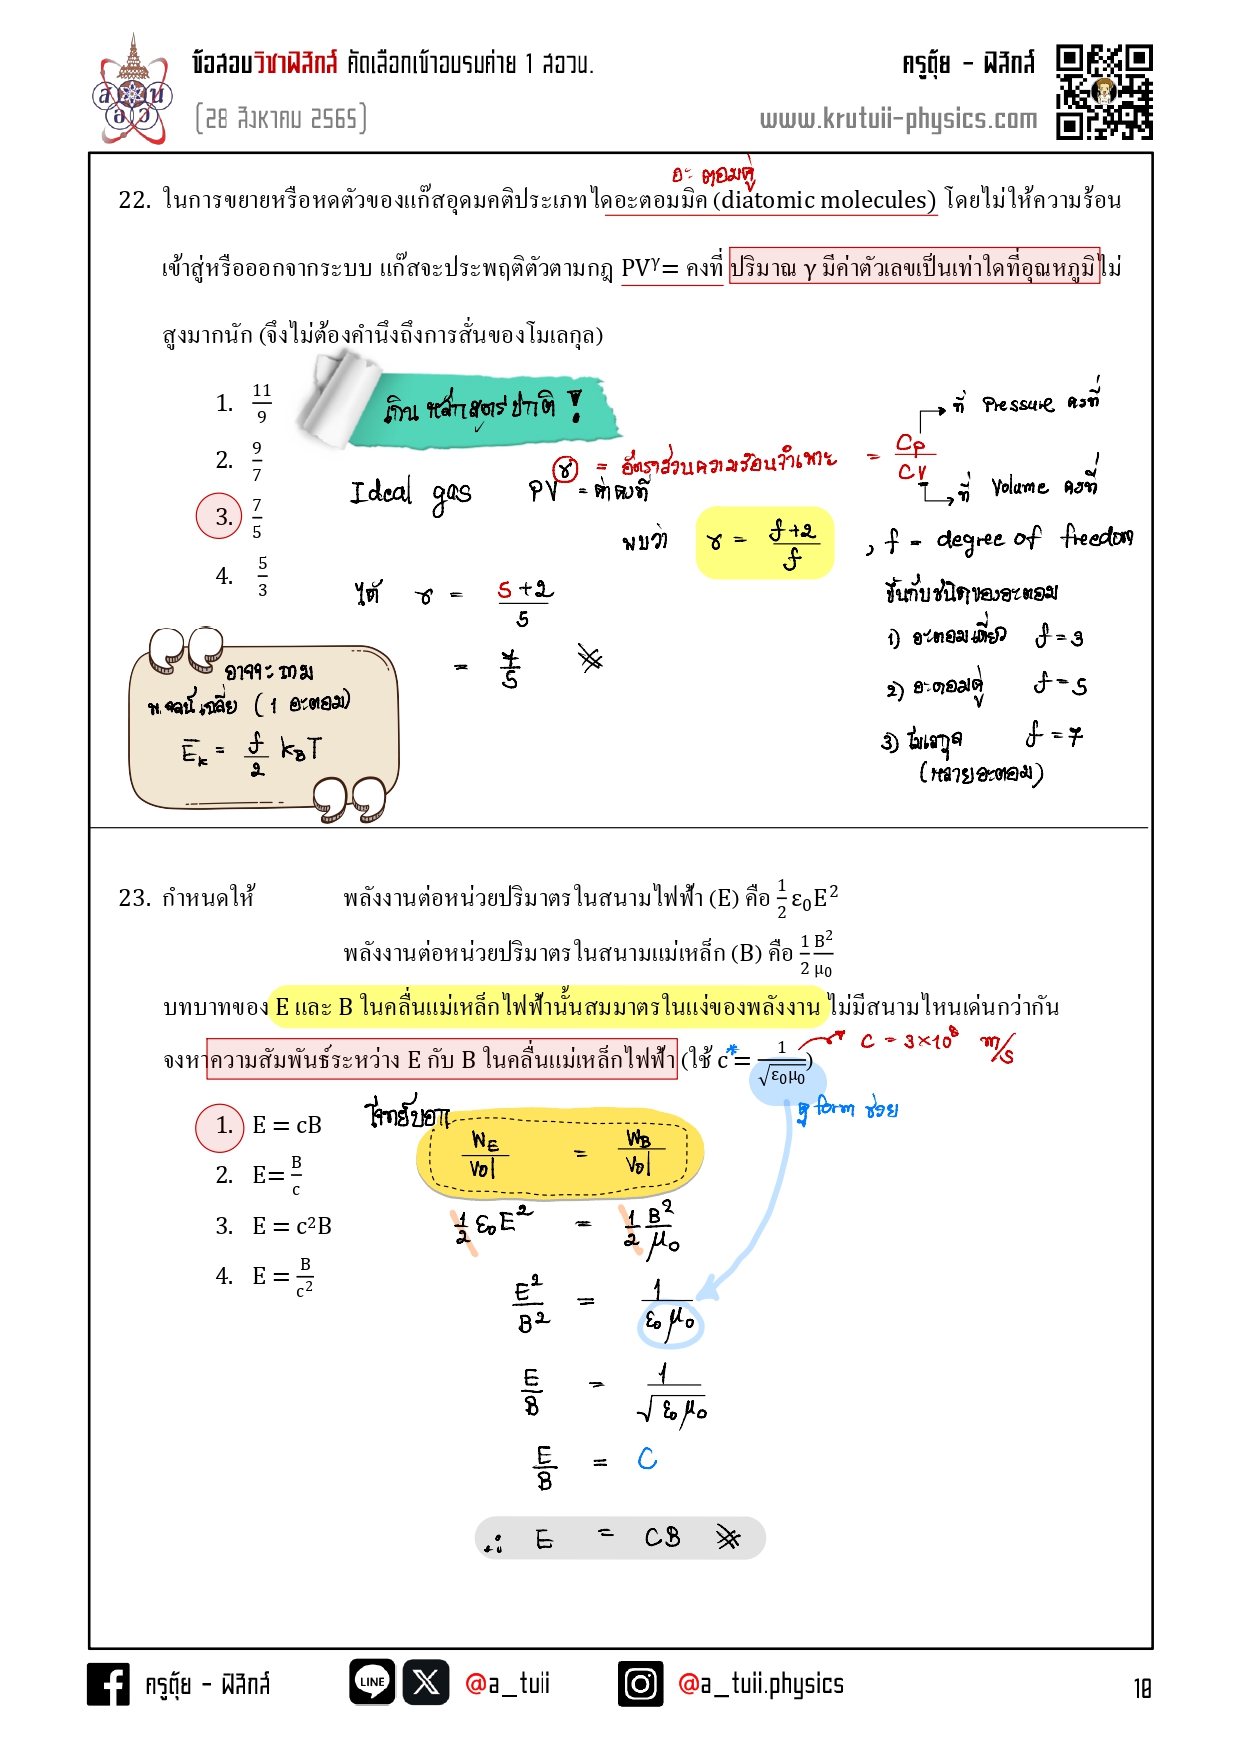 ข้อสอบวิชาฟิสิกส์ คัดเลือกเข้าอบรมค่าย 1 สอวน.
ครูตุ้ย - ฟิสิกส์
(28 สิงหาคม 2565)
www.krutuii-physics.com
อะตอมคู่
22. ในการขยายหรือหดตัวของแก๊สอุดมคติประเภทไดอะตอมมิค (diatomic molecules) โดยไม่ให้ความร้อน
เข้าสู่หรือออกจากระบบ แก๊สจะประพฤติตัวตามกฎ PV^γ= คงที่ ปริมาณ γ มีค่าตัวเลขเป็นเท่าใดที่อุณหภูมิไม่
สูงมากนัก (จึงไม่ต้องคำนึงถึงการสั่นของโมเลกุล)
1. 11/9
2. 9/7
3. 7/5
4. 5/3
เกินหลักสูตรปกติ !
Ideal gas PV^γ = ค่าคงที่
γ = อัตราส่วนความร้อนจำเพาะ = Cp/CV
ที่ Pressure คงที่
ที่ Volume คงที่
พบว่า γ = f+2/f , f = degree of freedom
ขึ้นกับชนิดของอะตอม
1) อะตอมเดี่ยว f = 3
2) อะตอมคู่ f = 5
3) โมเลกุล f = 7
(หลายอะตอม)
ได้ γ = 5+2/5
= 7/5
อาจจะถาม
พ.จลน์เฉลี่ย (1 อะตอม)
Ēk = f/2 kBT
23. กำหนดให้ พลังงานต่อหน่วยปริมาตรในสนามไฟฟ้า (E) คือ 1/2 ε₀E²
พลังงานต่อหน่วยปริมาตรในสนามแม่เหล็ก (B) คือ 1/2 B²/μ₀
บทบาทของ E และ B ในคลื่นแม่เหล็กไฟฟ้านั้นสมมาตรในแง่ของพลังงาน ไม่มีสนามไหนเด่นกว่ากัน
จงหาความสัมพันธ์ระหว่าง E กับ B ในคลื่นแม่เหล็กไฟฟ้า (ใช้ c* = 1/√ε₀μ₀)
C = 3×10⁸ m/s
ดู form ช่วย
1. E = cB
2. E= B/c
3. E = c²B
4. E = B/c²
โจทย์บอก
WE/Vol = WB/Vol
1/2 ε₀E² = 1/2 B²/μ₀
E²/B² = 1/ε₀μ₀
E/B = 1/√ε₀μ₀
E/B = C
∴ E = CB
ครูตุ้ย - ฟิสิกส์
LINE
@a_tuii
@a_tuii.physics
18